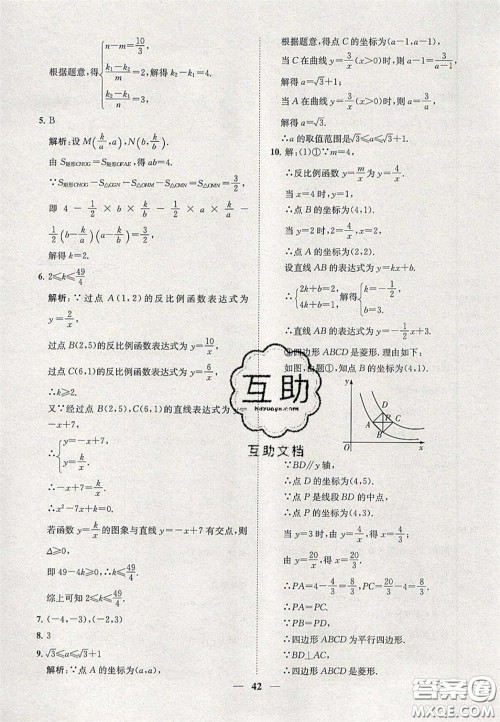 根据题意，得{n-m=10/3, (k₁-k₂)/m=2, (k₁-k₂)/n
解得k₂-k₁=4.
5. B
解析：设M(k/a,a),N(b,k/b).
由S矩形CHOG=S矩形OFAE，得ab=4.
∵S矩形CHOG-S△CGN-S△OMM-S△CMN=3/2,
即 4 - 1/2 × b × k/b - 1/2 × a × k/a -
1/2(b-k/a)(a-k/b)=3/2,
6. 2≤k≤49/4
解析：∵过点A(1,2)的反比例函数表达式为
y=2/x,
过点B(2,5)的反比例函数表达式为y=10/x,
过点C(6,1)的反比例函数表达式为y=6/x,
∴k≥2.
又∵经过点B(2,5),C(6,1)的直线表达式为y=
-x+7,
∴{y=k/x, y=-x+7.
∴-x+7=k/x.
∴x²-7x+k=0.
若函数y=k/x的图象与直线y=-x+7有交点，则
Δ≥0,
即49-4k≥0，∴k≤49/4.
综上可知2≤k≤49/4.
7. (-4,-3),(-2,3)
8. 3
9. √3≤a≤√3+1
解析：∵点A的坐标为(a,a),
根据题意，得点C的坐标为(a-1,a-1),
当C在曲线y=3/x(x>0)时，则a-1=3/(a-1),
解得a=√3+1;
当A在曲线y=3/x(x>0)时，则a=3/a,
解得a=√3.
∴a的取值范围是√3≤a≤√3+1.
10. 解：(1)①∵m=4,
∴反比例函数y=m/x为y=4/x.
当x=4时，y=1,
∴点B的坐标为(4,1).
当y=2时，2=4/x，x=2,
∴点A的坐标为(2,2).
设直线AB的表达式为y=kx+b.
∴{2k+b=2, 4k+b=1, 解得{k=-1/2, b=3.
∴直线AB的表达式为y=-1/2x+3.
②四边形ABCD是菱形. 理由如下：
如图，由题①，知点B的坐标为(4,1).
y
D
A P C
B
O x
∵BD∥y轴，
∴点D的坐标为(4,5).
∵点P是线段BD的中点，
∴点P的坐标为(4,3).
当y=3时，由y=4/x，得x=4/3,
由y=20/x，得x=20/3.
∴PA=4-4/3=8/3，PC=20/3-4=8/3.
∴PA=PC.
∵PB=PD,
∴四边形ABCD为平行四边形.
∵BD⊥AC,
∴四边形ABCD是菱形.
互助
互助文档
42
答案圈
MXQE.COM